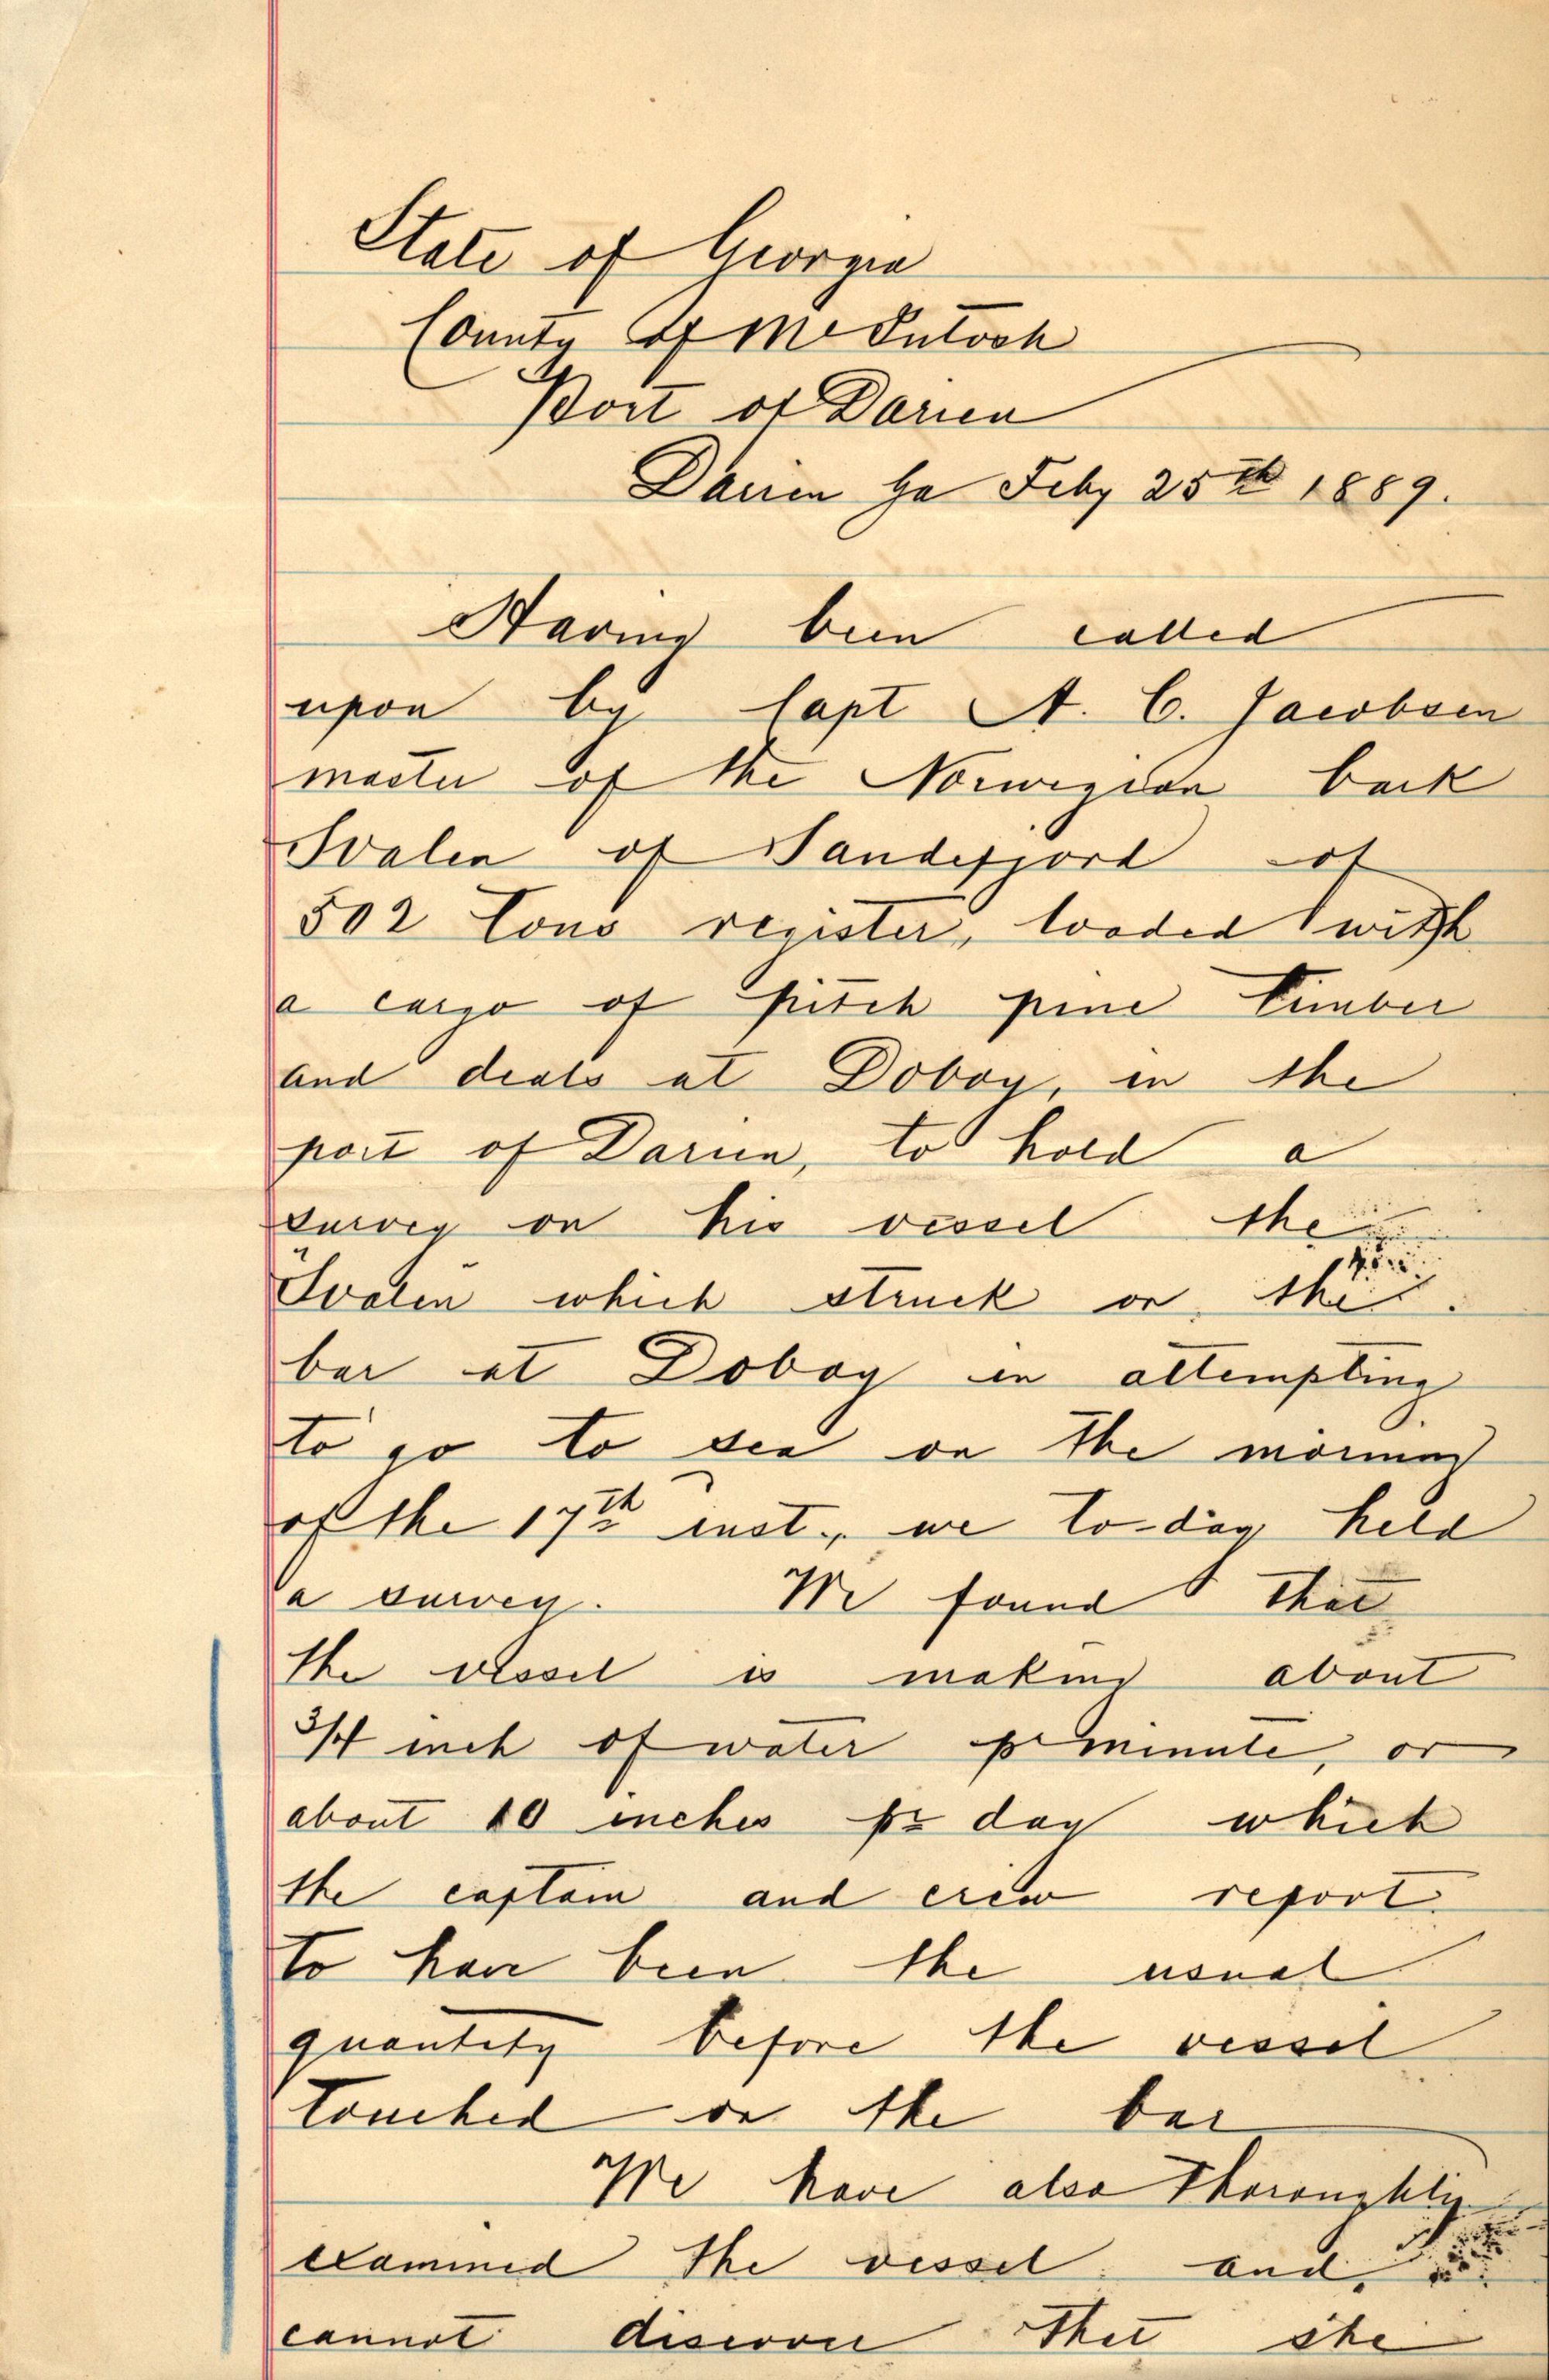 State of Georgia
County of McIntosh
Port of Darien
Darien Ga Feby 25th 1889.
Having been called
upon by Capt A. C. Jacobsen
master of the Norwegian bark
Svalen of Sandefjord of
502 tons register, loaded with
a cargo of pitch pine timber
and deals at Doboy, in the
port of Darien, to hold a
survey on his vessel the
"Svalen" which struck on the
bar at Doboy in attempting
to go to sea on the morning
of the 17th inst., we to-day held
a survey. We found that
the vessel is making about
3/4 inch of water pr minute, or
about 10 inches pr day which
the captain and crew report
to have been the usual
quantity before the vessel
touched on the bar
We have also thoroughly
examined the vessel and
cannot discover that she